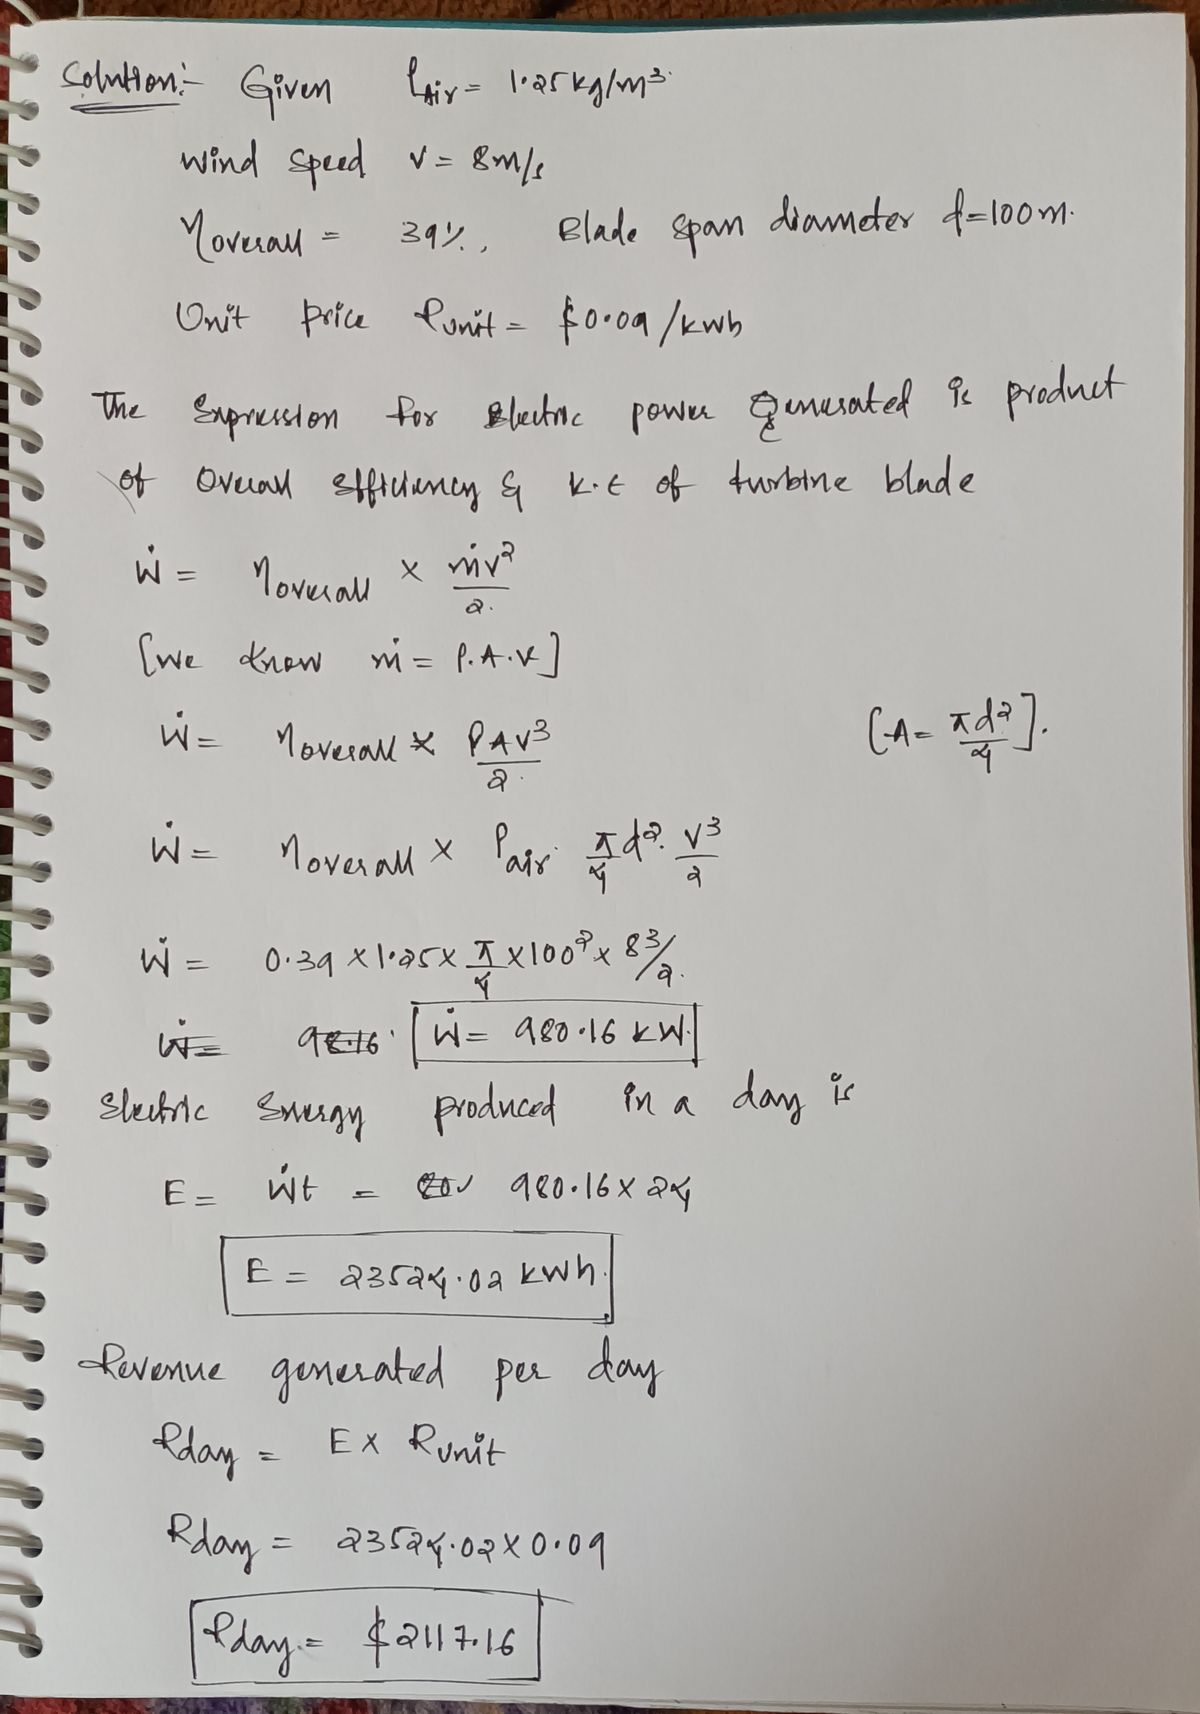 Solution:- Given ρAir = 1.25 kg/m³.
Wind speed v = 8m/s
ηoverall = 39%, Blade span diameter d=100m.
Unit price Runit = $0.09/kwh
The Expression for Electric power Generated is product
of Overall Efficiency & K.E of turbine blade
Ẇ = ηoverall × ṁv²/2.
[we know ṁ = ρ.A.V]
Ẇ = ηoverall × ρAV³/2. [A = πd²/4].
Ẇ = ηoverall × ρair π/4 d². V³/2
Ẇ = 0.39 × 1.25 × π/4 × 100² × 8³/2.
Ẇ = 98.16. Ẇ = 980.16 kW.
Electric Energy produced in a day is
E = Ẇt = 980.16 × 24
E = 23524.02 kwh.
Revenue generated per day
Rday = E × Runit
Rday = 23524.02 × 0.09
Rday = $2117.16